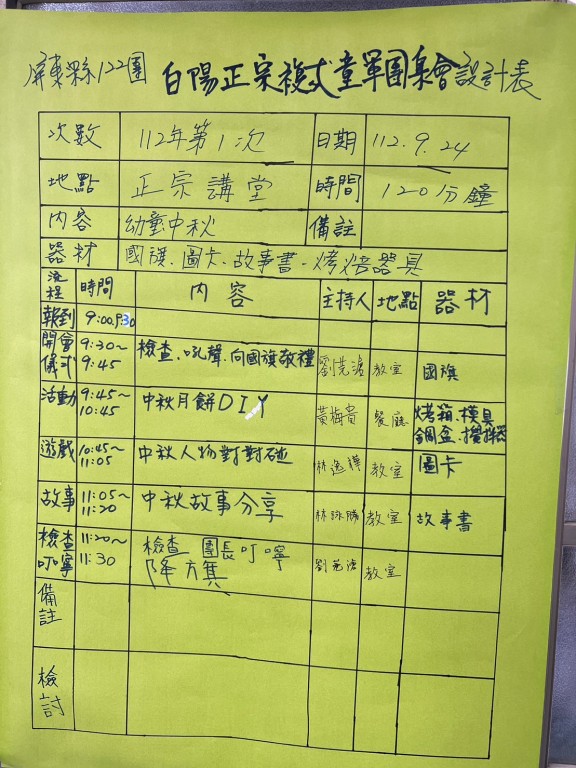 屏東縣122團 白陽正宗複式童軍團集會設計表
次數 112年第1次 日期 112.9.24
地點 正宗講堂 時間 120分鐘
內容 幼童中秋 備註
器材 國旗、圖卡、故事書、烤焙器具
流程 時間 內容 主持人 地點 器材
報到 9:00 9:30
開會儀式 9:30~9:45 檢查、吼聲、向國旗敬禮 教室 國旗
活動 9:45~10:45 中秋月餅DIY 黃梅貴 餐廳 烤箱、模具 鋼盆、攪拌器
遊戲 10:45~11:05 中秋人物對對碰 教室 圖卡
故事 11:05~11:20 中秋故事分享 教室 故事書
檢查叮嚀 11:20~11:30 檢查 團長叮嚀 降旗 教室
備註
檢討